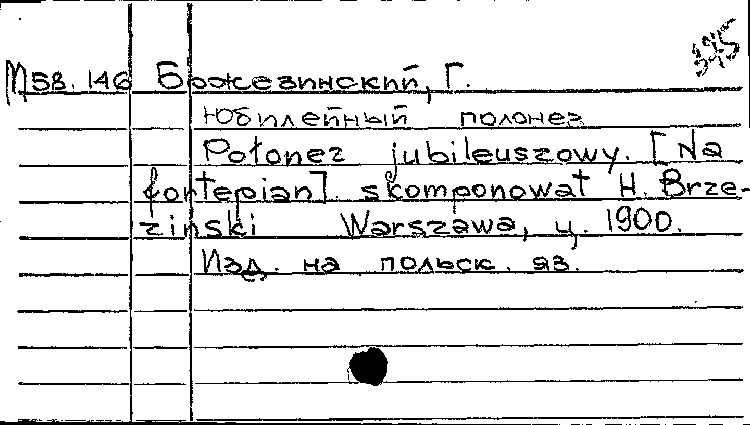 395
М58.146 Бржезинский, Г.
Юбилейный полонез
Polonez jubileuszowy. [Na
fortepian]. skomponował H. Brze-
zinski Warszawa, ц. 1900.
Изд. на польск. яз.